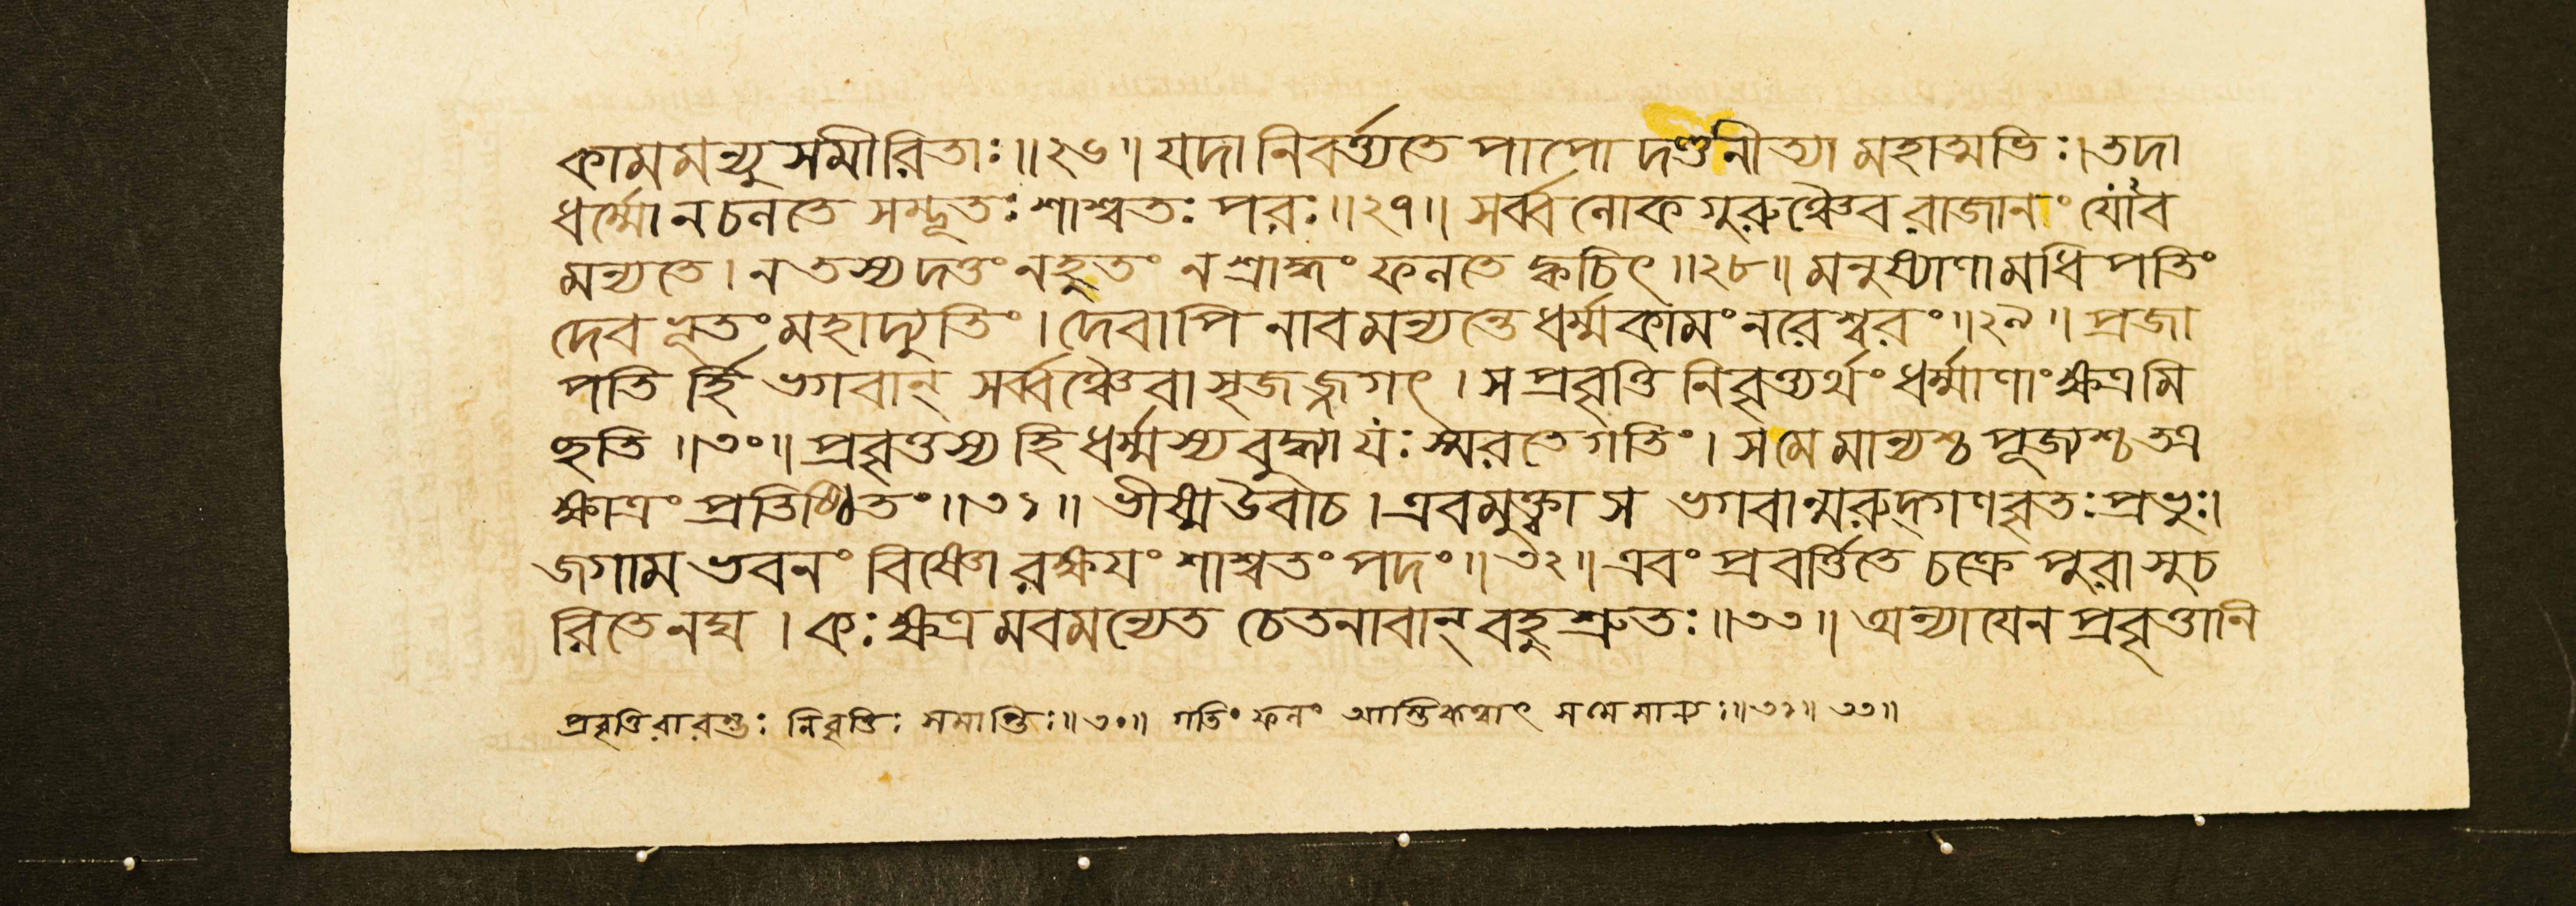 কামমন্যুসমীরিতাঃ॥২৬॥ যদা নিবর্ত্ত্যতে পাপো দণ্ডনীত্যা মহাত্মভিঃ। তদা
ধর্ম্মো ন চলতে সম্ভূতঃ শাশ্বতঃ পরঃ॥২৭॥ সর্ব্বলোকগুরুঞ্চৈব রাজানং যোঽব
মন্যতে। ন তস্য দত্তং ন হুতং ন শ্রাদ্ধং ফলতে ক্বচিৎ॥২৮॥ মনুষ্যাণামধিপতিং
দেবভূতং মহাদ্যুতিং। দেবাপি নাবমন্যন্তে ধর্ম্মকামং নরেশ্বরং॥২৯॥ প্রজা
পতির্হি ভগবান্ সর্ব্বঞ্চৈবাসৃজজ্জগৎ। স প্রবৃত্তিনিবৃত্ত্যর্থং ধর্ম্মাণাং ক্ষত্রমি
চ্ছতি॥৩০॥ প্রবৃত্তস্য হি ধর্ম্মস্য বুদ্ধ্যা যঃ স্মরতে গতিং। স মে মান্যশ্চ পূজ্যশ্চ তত্র
ক্ষাত্রং প্রতিষ্ঠিতং॥৩১॥ ভীষ্ম উবাচ। এবমুক্ত্বা স ভগবান্মরুদ্গণবৃতঃ প্রভুঃ।
জগাম ভবনং বিষ্ণোরক্ষয়ং শাশ্বতং পদং॥৩২॥ এবং প্রবর্ত্তিতে চক্রে পুরা সুচ
রিতেনঘ। কঃ ক্ষত্রমবমন্যেত চেতনাবান্ বহুশ্রুতঃ॥৩৩॥ অন্যায়েন প্রবৃত্তানি
প্রবৃত্তিরারম্ভঃ নিবৃত্তিঃ সমাপ্তিঃ॥৩০॥ গতিং ফলং আস্তিকত্বাৎ স মে মান্যঃ॥৩১॥৩৩॥